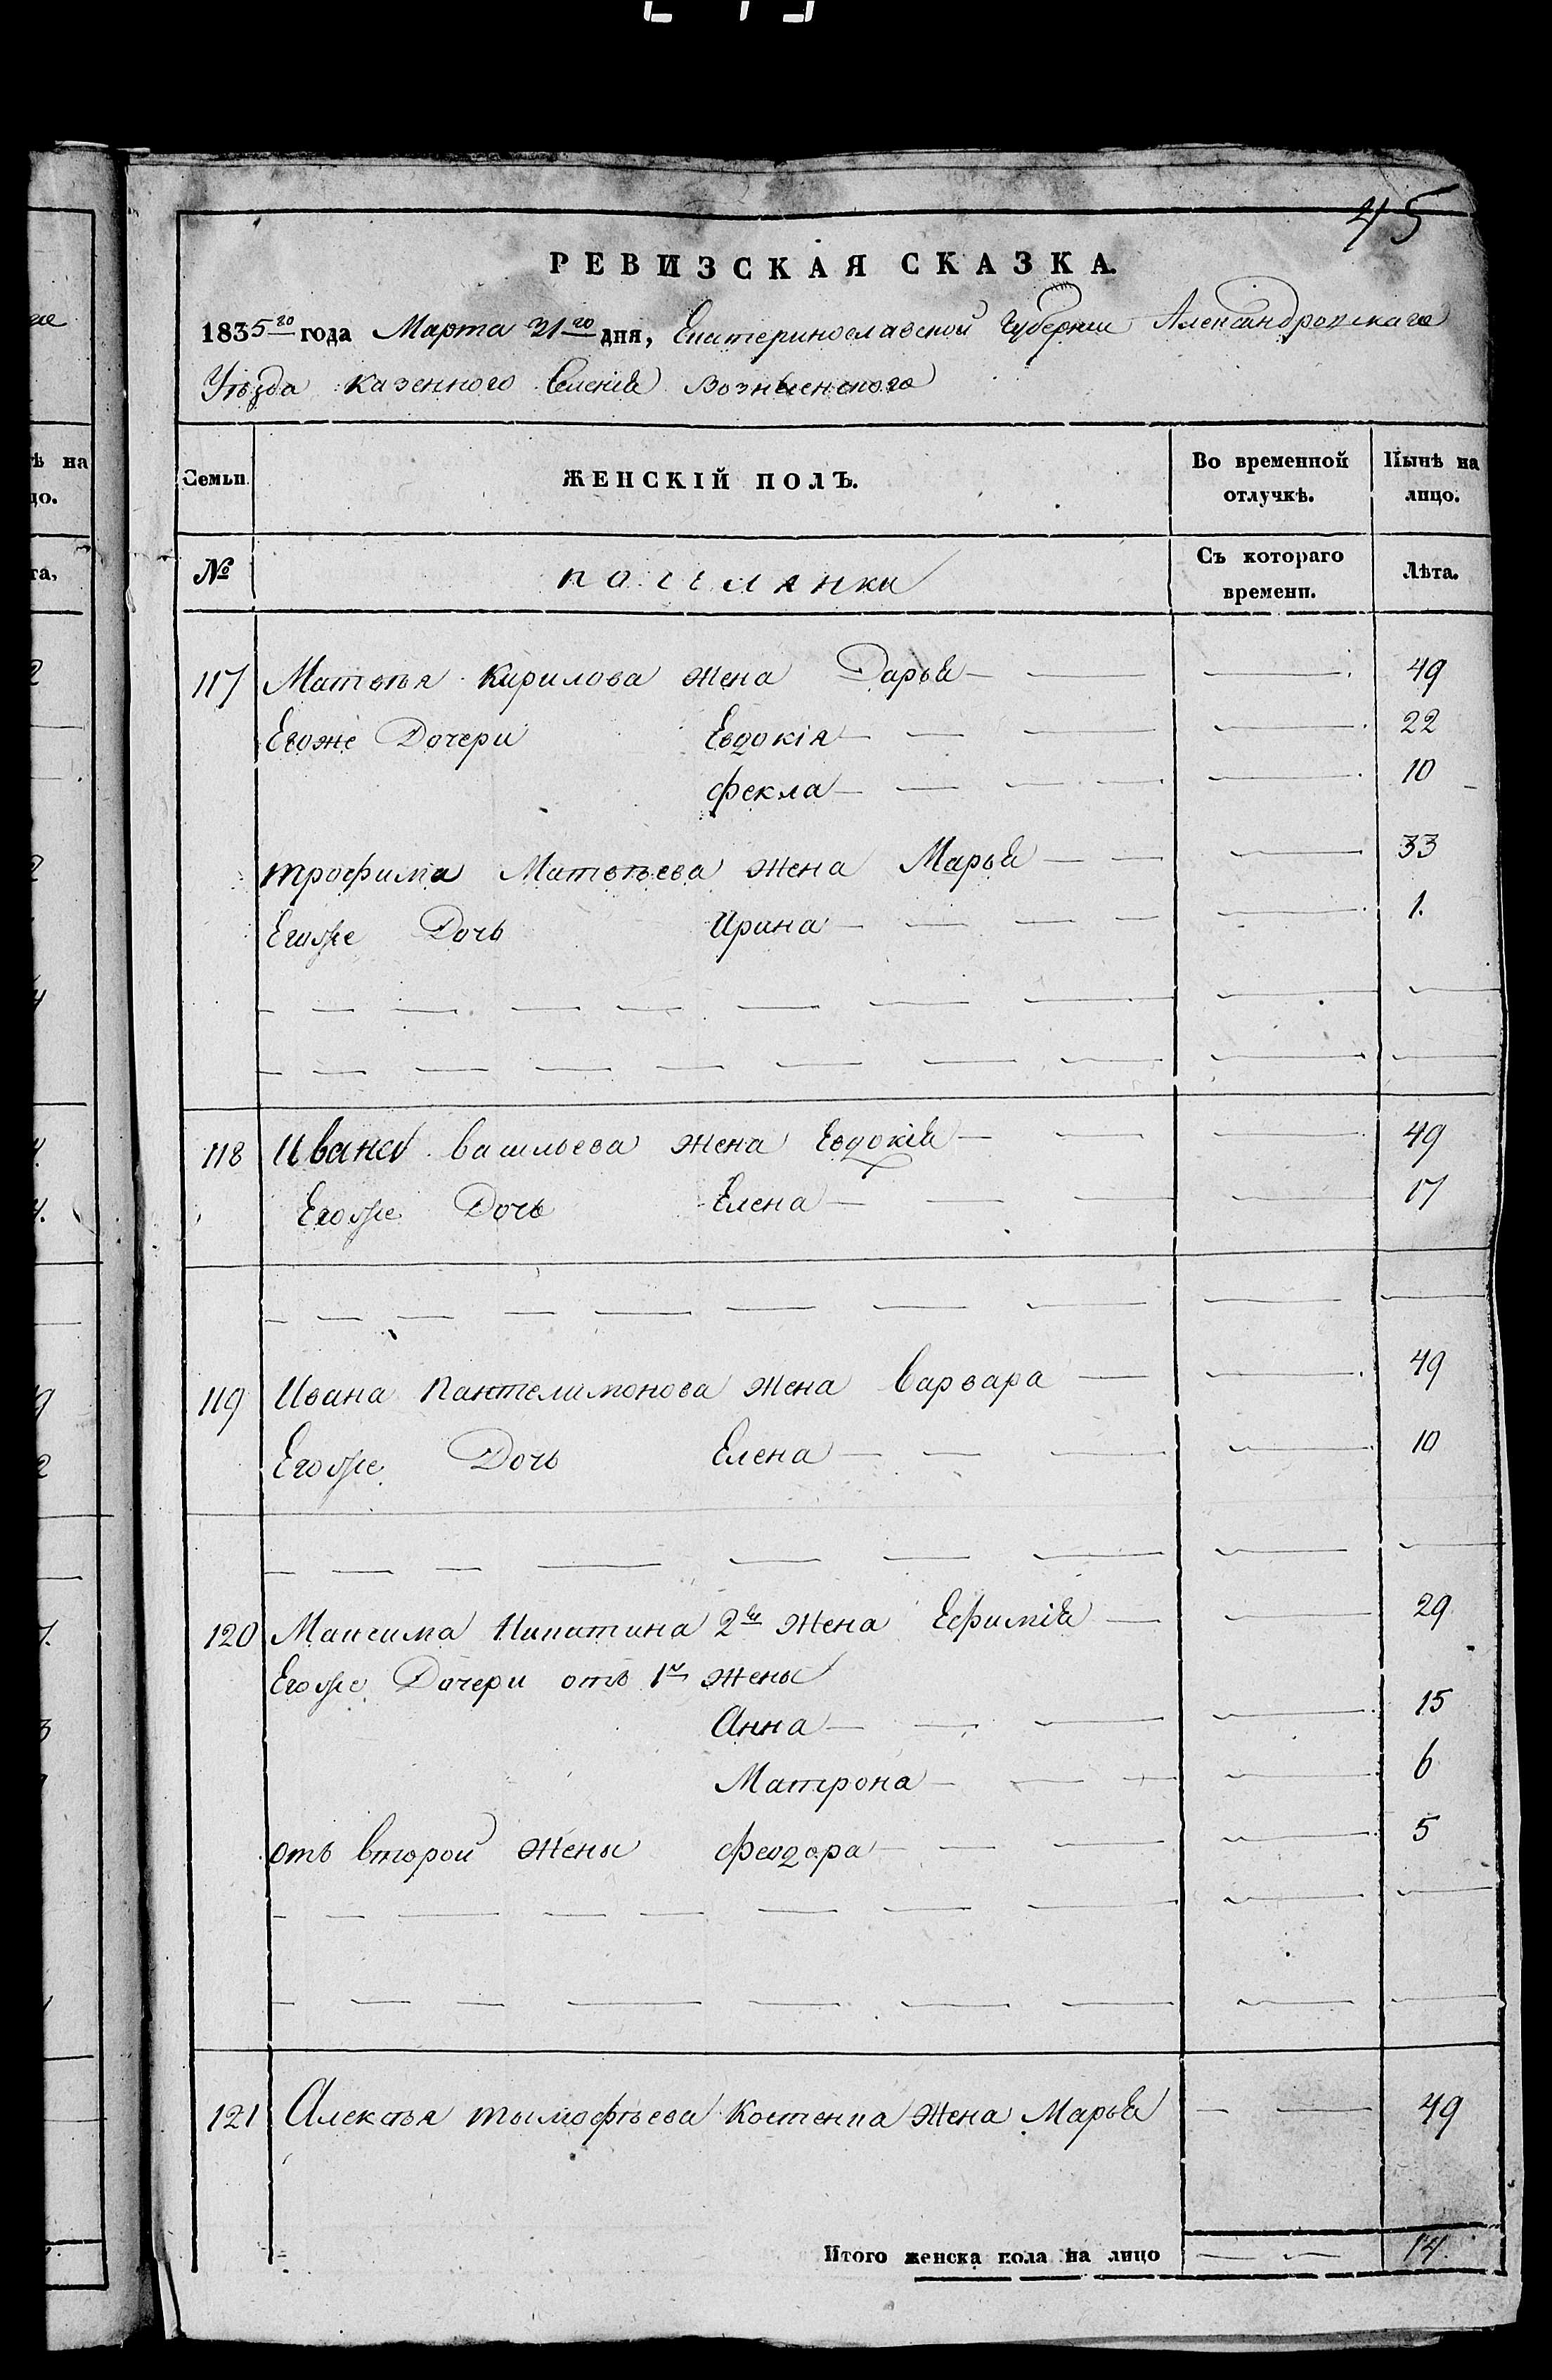 45
РЕВИЗСКАЯ СКАЗКА.
1835го года Марта 31го дня, Екатеринославской Губернии Александровскаго
Уѣзда казенного селенія Вознесенского
Семьи ЖЕНСКІЙ ПОЛЪ. Во временной отлучкѣ. Нынѣ на лицо.
№ поселянки Съ котораго времени. Лѣта.
117 Матвѣя Кирилова жена Дарья 49
Егоже Дочери Евдокія 22
Фекла 10
трофима Матвѣева жена Марья 33
Егоже Дочь Ирина 1.
118 Ивана Васильева жена Евдокія 49
Егоже Дочь Елена 17
119 Ивана Пантелимонова жена Варвара 49
Егоже Дочь Елена 10
120 Максима Никитина 2я жена Ефимія 29
Егоже Дочери отъ 1й жены
Анна 15
Матрона 6
отъ второй жены Феодора 5
121 Алексѣя тымофѣева Костенка жена Марья 49
Итого женска пола на лицо 14.